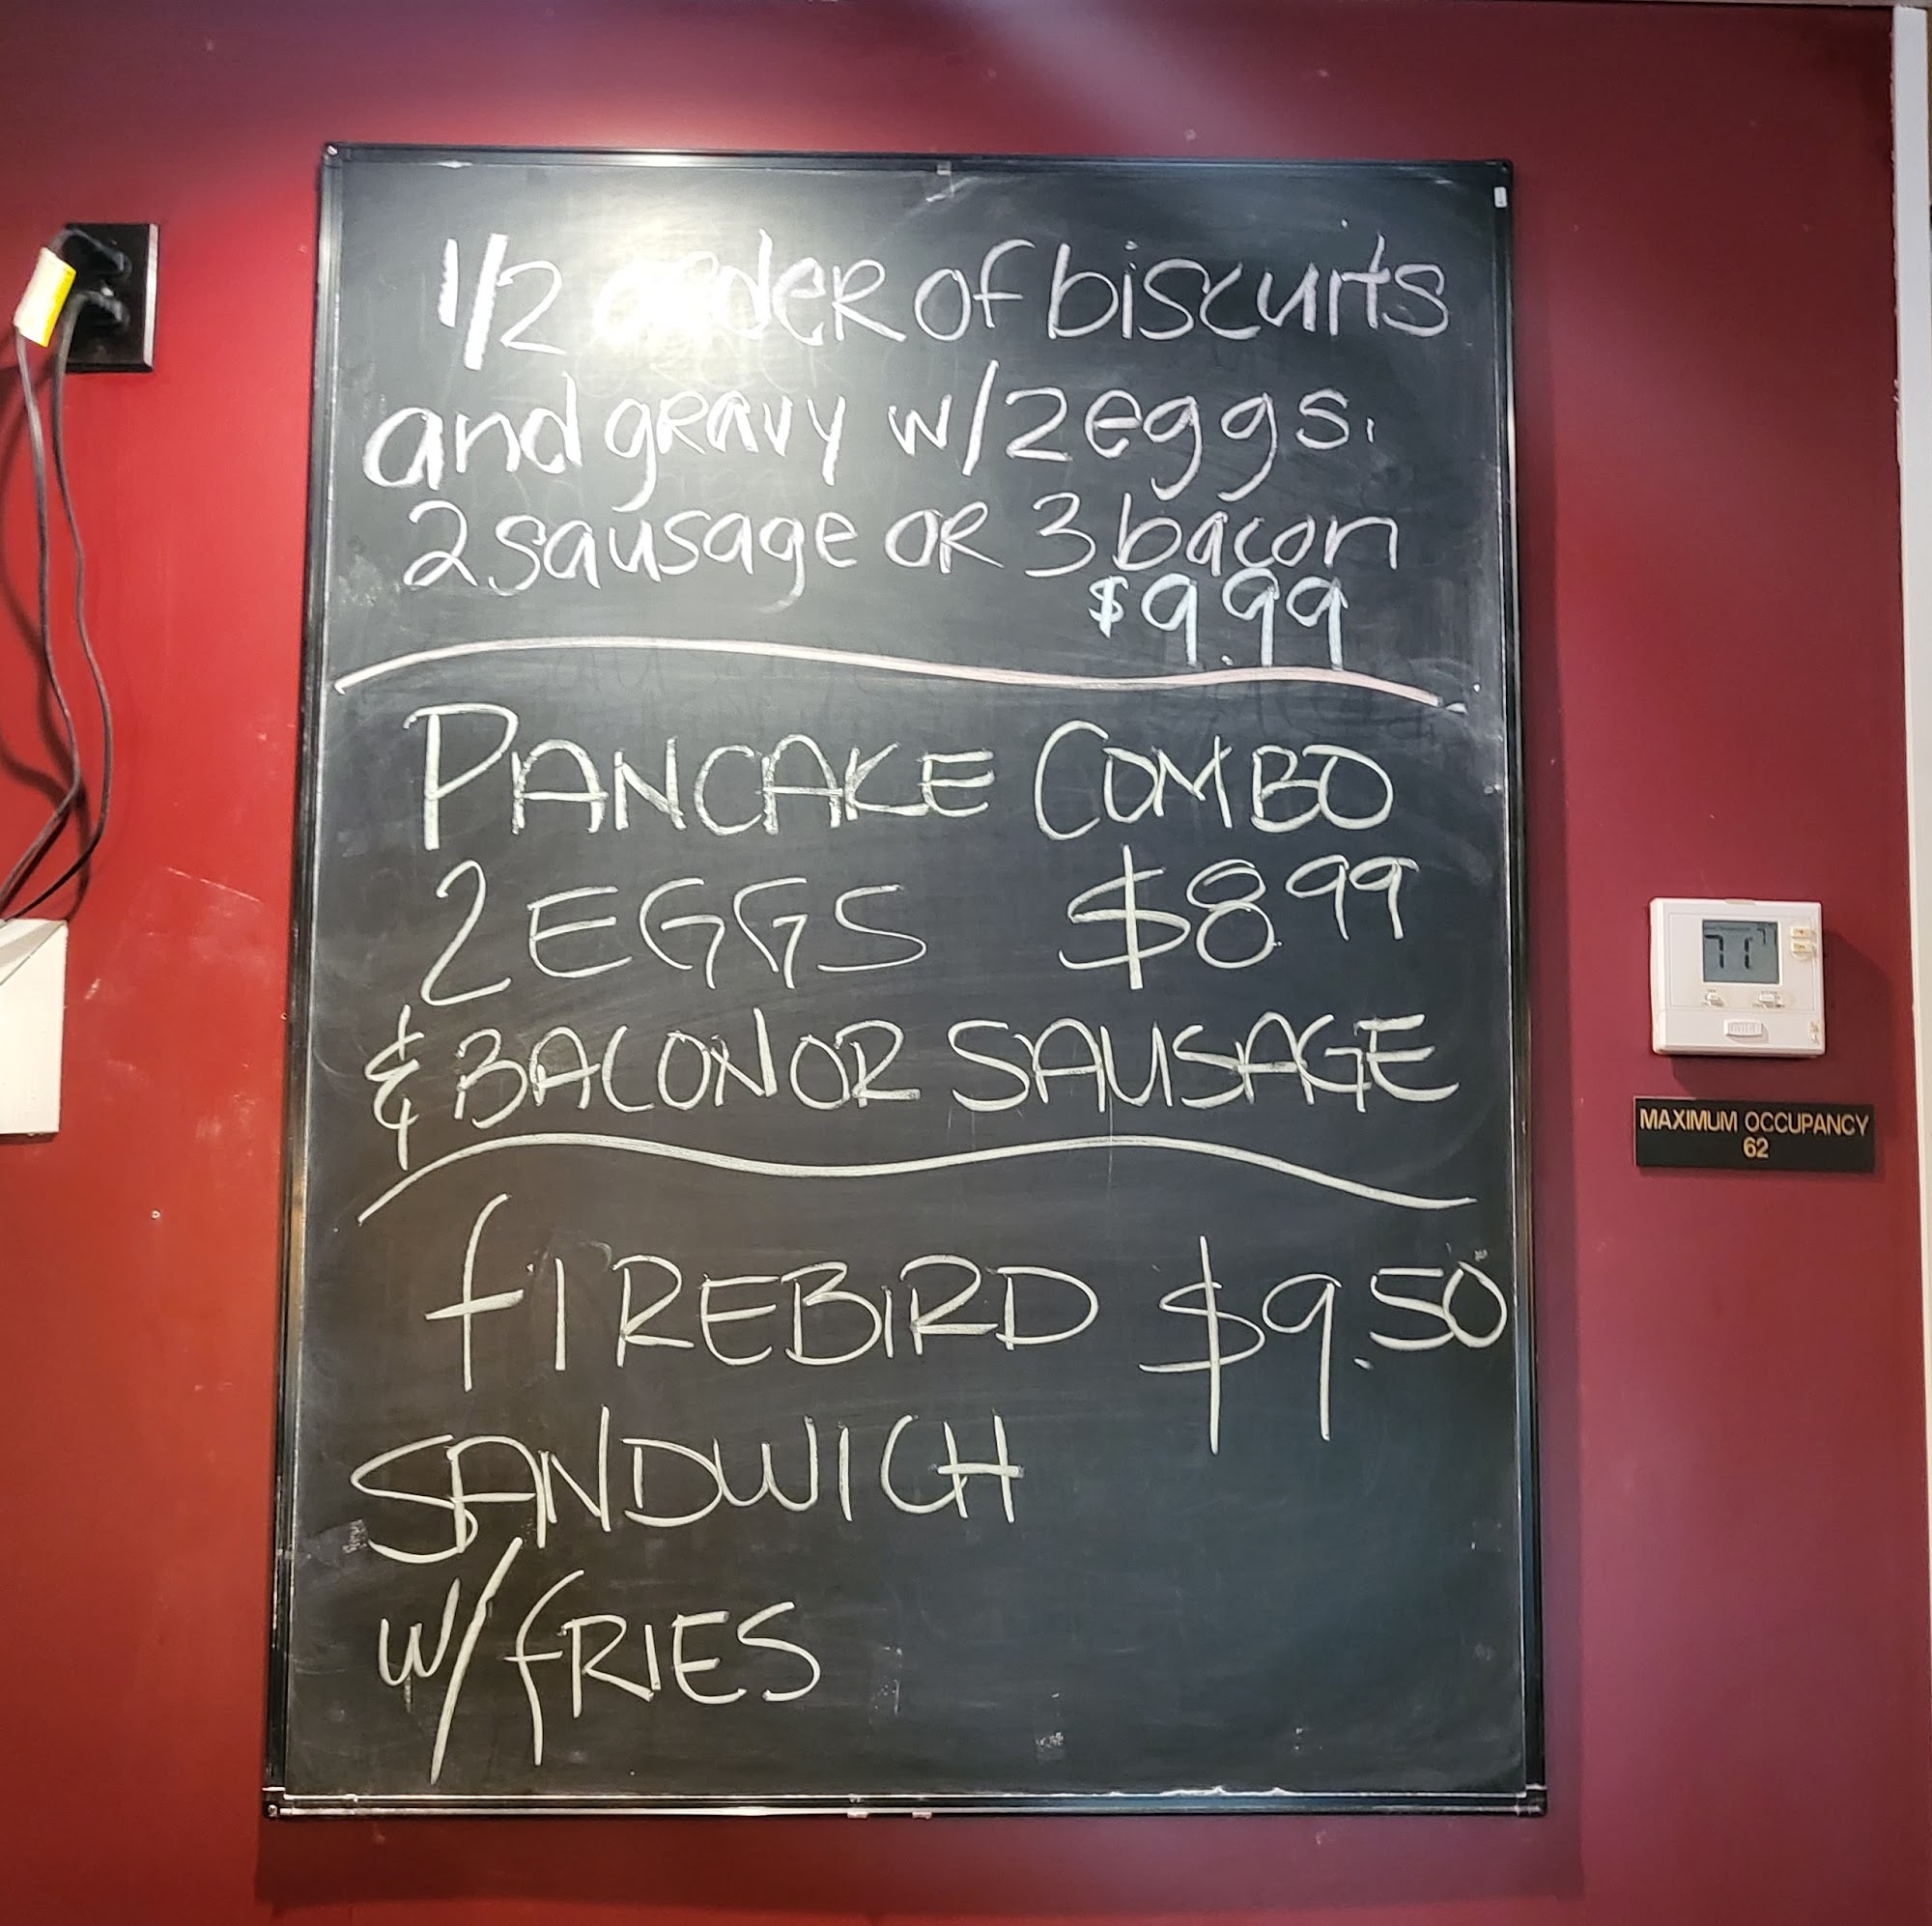 1/2 order of biscuits
and gravy w/2 eggs.
2 sausage or 3 bacon
$9.99
PANCAKE COMBO
2 EGGS $8.99
& BACON OR SAUSAGE
fIREBIRD $9.50
SANDWICH
w/ fRIES
71
MAXIMUM OCCUPANCY
62